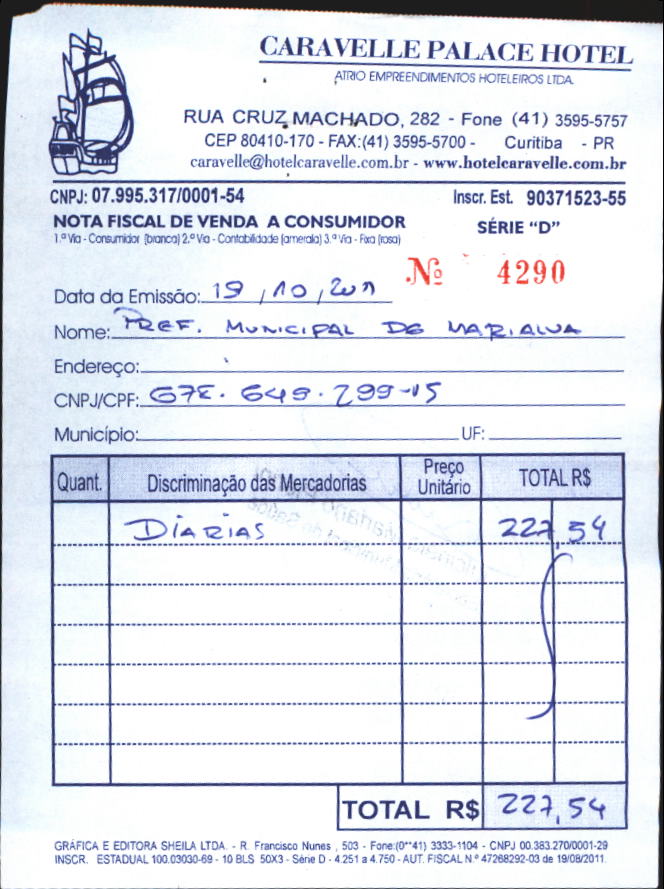 CARAVELLE PALACE HOTEL
ATRIO EMPREENDIMENTOS HOTELEIROS LTDA.
RUA CRUZ MACHADO, 282 - Fone (41) 3595-5757
CEP 80410-170 - FAX:(41) 3595-5700 - Curitiba - PR
caravelle@hotelcaravelle.com.br - www.hotelcaravelle.com.br
CNPJ: 07.995.317/0001-54 Inscr. Est. 90371523-55
NOTA FISCAL DE VENDA A CONSUMIDOR SÉRIE "D"
1.ª Via - Consumidor (branca) 2.ª Via - Contabilidade (amerala) 3.ª Via - Fixa (rosa)
Nº 4290
Data da Emissão: 19/10/2011
Nome: PREF. MUNICIPAL DE MARIALVA
Endereço:
CNPJ/CPF: 676.649.299-15
Município: UF:
Quant. Discriminação das Mercadorias Preço Unitário TOTAL R$
DIARIAS 227,54
TOTAL R$ 227,54
GRÁFICA E EDITORA SHEILA LTDA. - R. Francisco Nunes , 503 - Fone:(0**41) 3333-1104 - CNPJ 00.383.270/0001-29
INSCR. ESTADUAL 100.03030-69 - 10 BLS 50X3 - Série D - 4.251 a 4.750 - AUT. FISCAL N.º 47268292-03 de 19/08/2011.